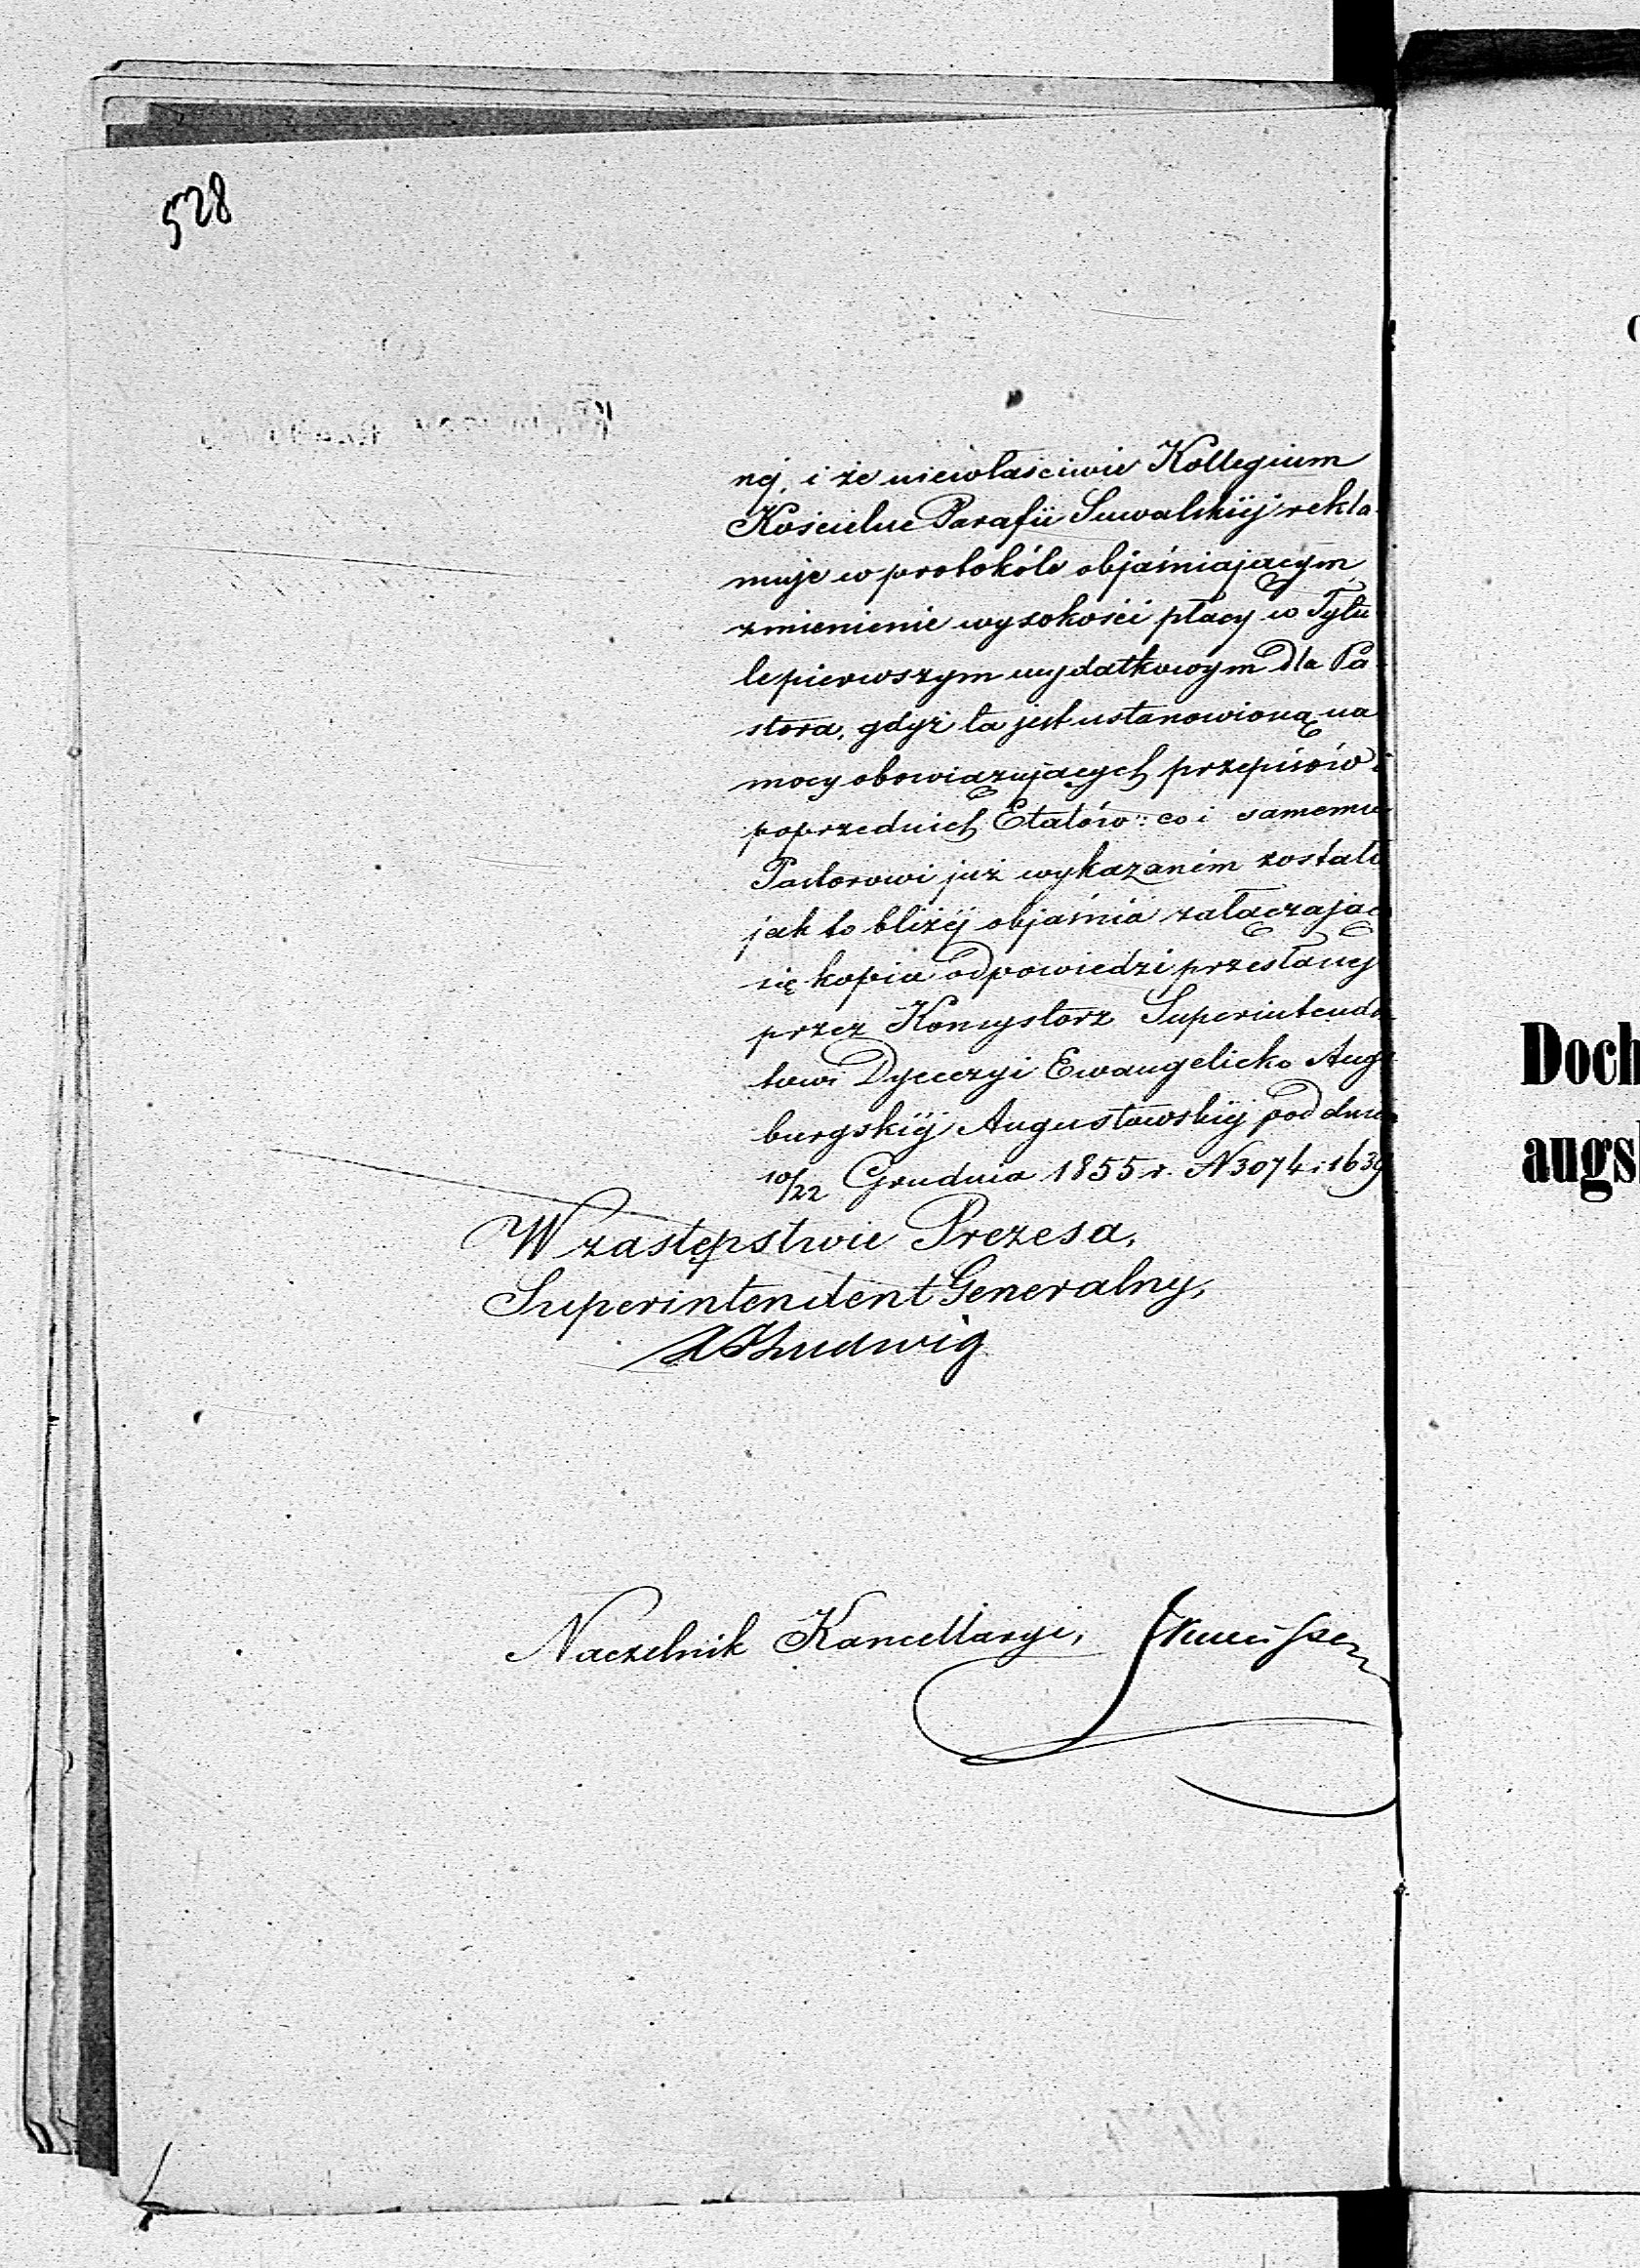 528
nej, i że niewłaściwie Kollegium
Kościelne Parafii Suwalskiéj rekla-
muje w protokóle objaśniającym
zmienienie wysokości płacy w Tytu-
le pierwszym wydatkowym dla Pa-
stora, gdyż ta jest ustanowioną na
mocy obowiązujących przepisów i
poprzednich Etatów: co i samemu
Pastorowi już wykazaném zostało
jak to bliżéj objaśnia załączając
się kopia odpowiedzi przesłanéj
przez Konsystorz Superintenden
towi Dyecezyi Ewangelicko Augs
burgskiéj Augustowskiéj pod dniem
10/22 Grudnia 1855 r. N 3074 i 1639
W zastępstwie Prezesa,
Superintendent Generalny,
Ludwig
Naczelnik Kancellaryi,
Doch
augs